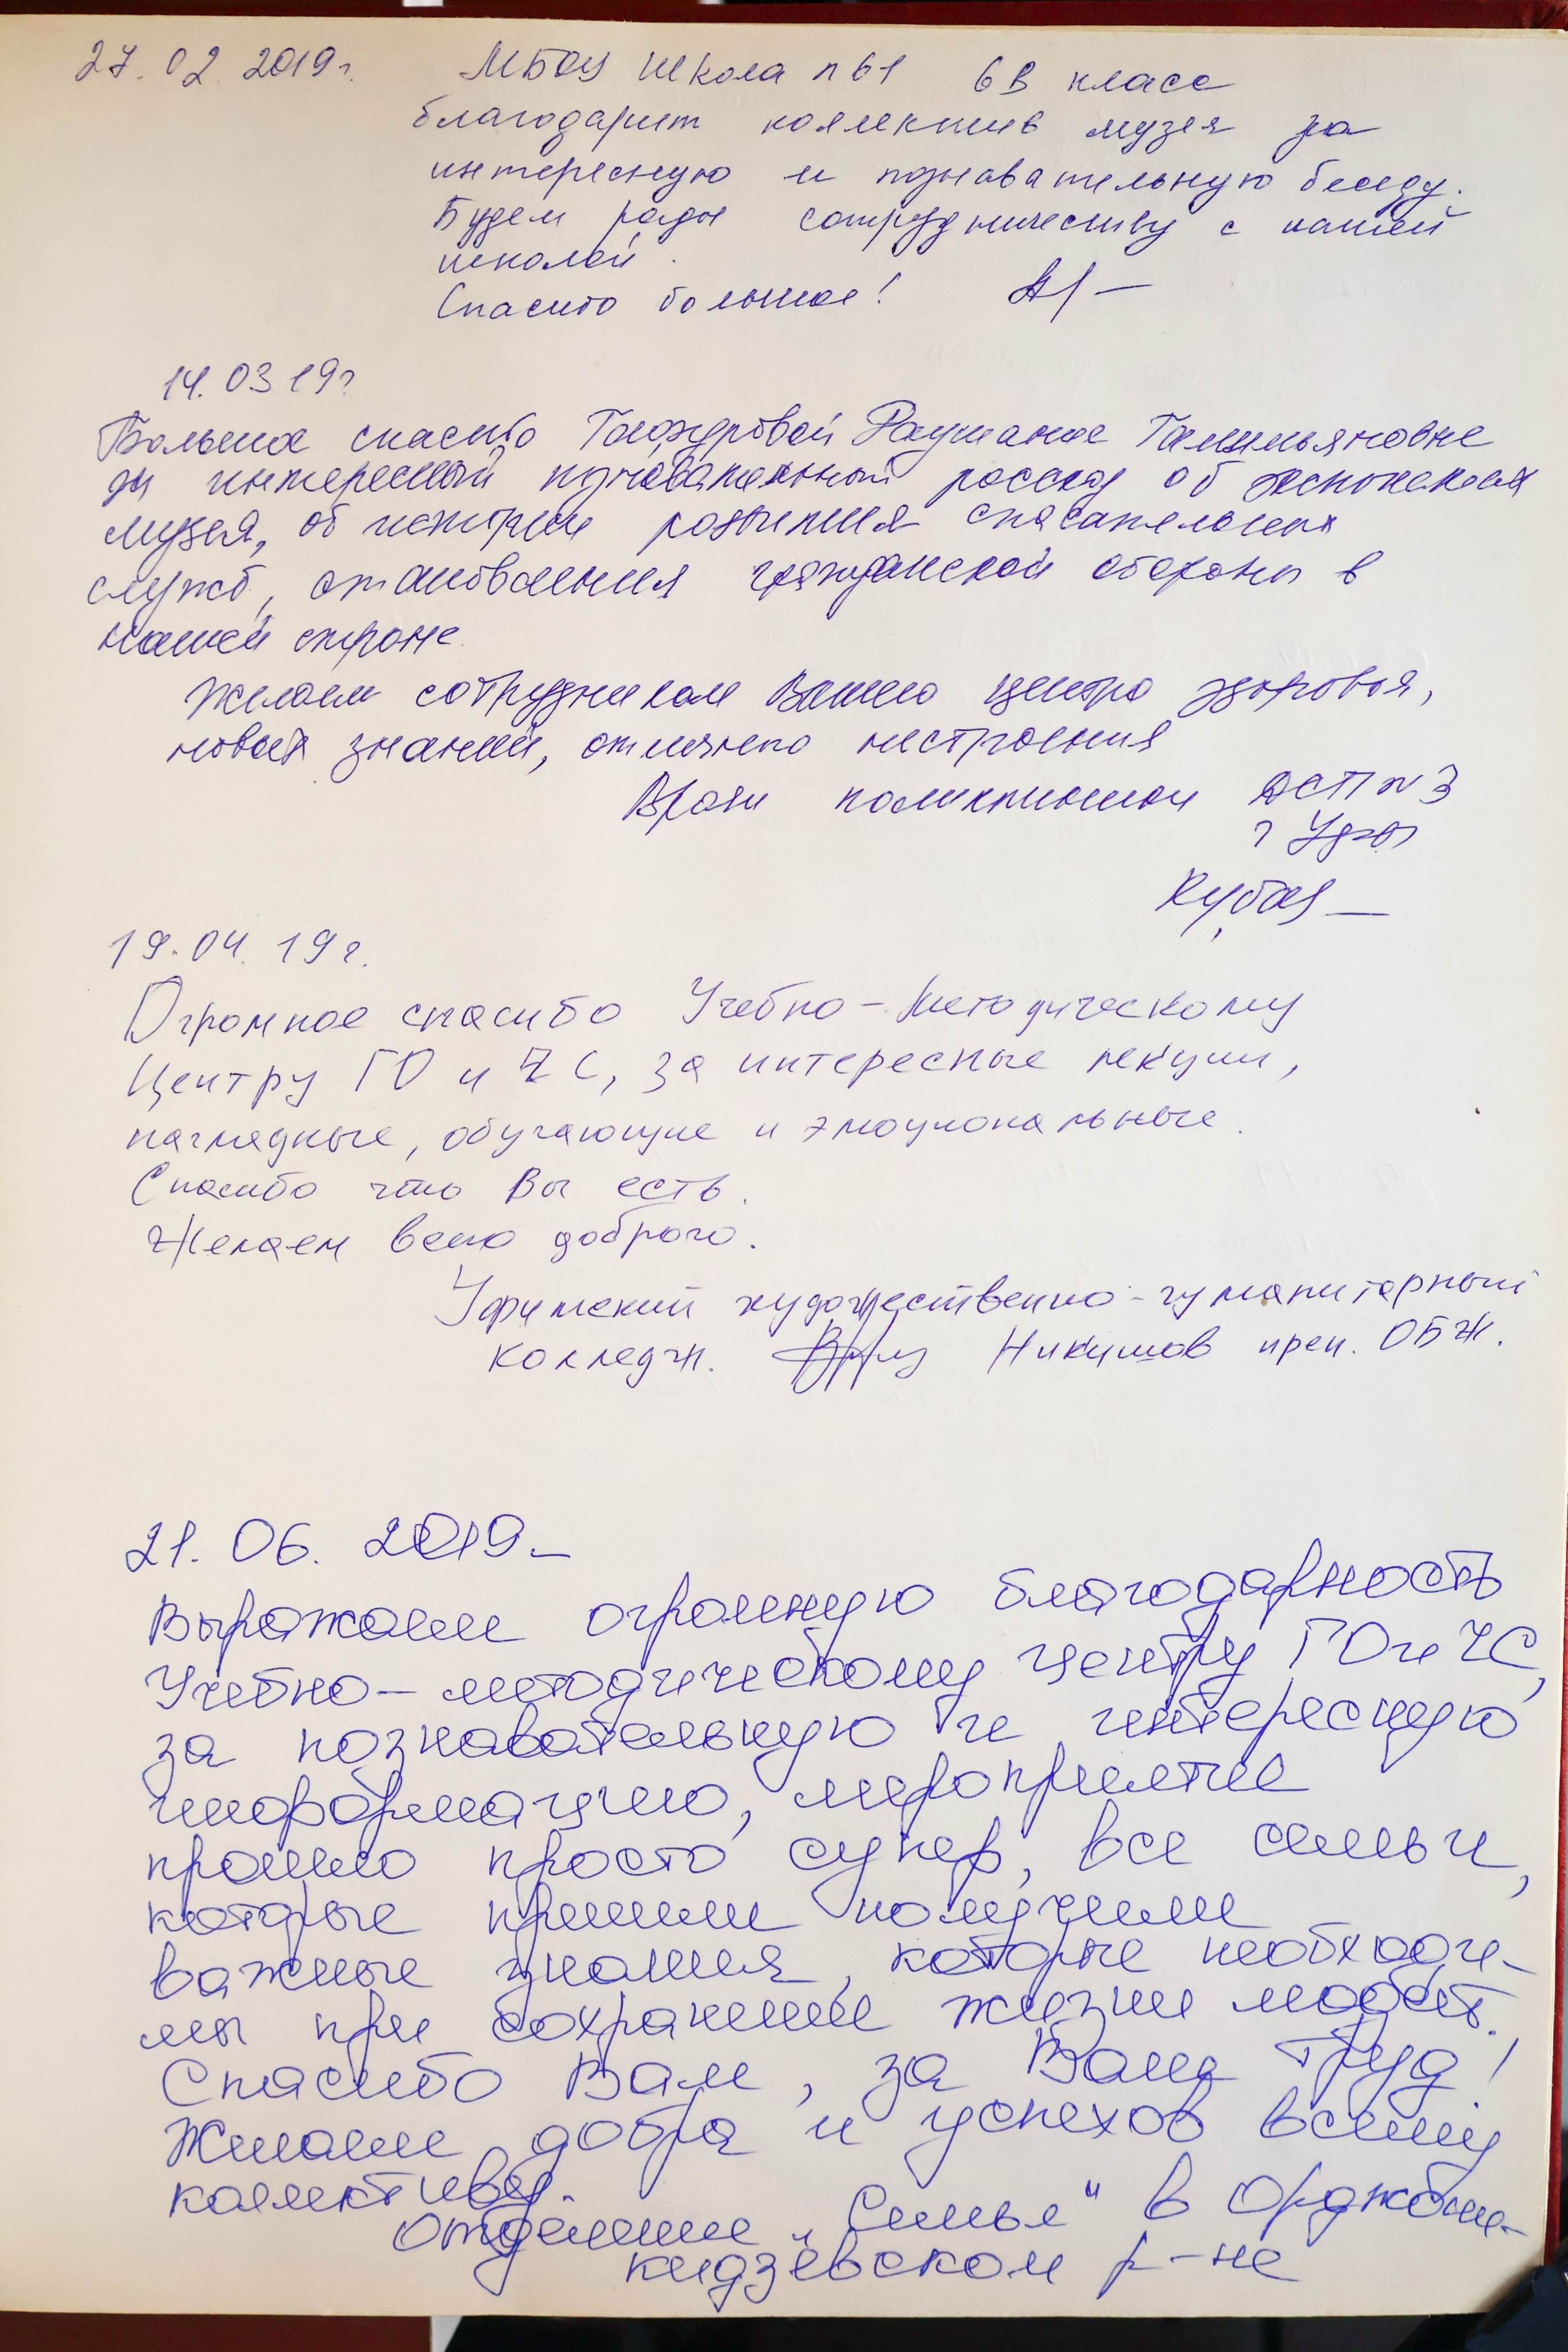 27.02.2019г. МБОУ Школа №61 6В класс
благодарит коллектив музея за
интересную и познавательную беседу.
Будем рады сотрудничеству с нашей
школой.
Спасибо большое!
14.03 19г
Большое спасибо Раушание
за интересный познавательный рассказ об экспонатах
музея, об истории развития спасательных
служб, становления гражданской обороны в
нашей стране.
Желаем сотрудникам Вашего центра здоровья,
новых знаний, отличного настроения
Врачи поликлиники №3
г Уфы
19.04.19г.
Огромное спасибо Учебно-Методическому
Центру ГО и ЧС, за интересные лекции,
наглядные, обучающие и эмоциональные.
Спасибо что Вы есть.
Желаем всего доброго.
Уфимский художественно-гуманитарный
колледж. Никишов преп. ОБЖ.
21.06.2019
Выражаем огромную благодарность
Учебно-методическому центру ГО и ЧС,
за познавательную и интересную
информацию, мероприятие
прошло просто супер, все семьи,
которые пришли получили
важные знания, которые необходи-
мы при сохранении жизни
Спасибо Вам, за Ваш труд!
Желаем добра и успехов всему
коллективу.
Отделение „Семья" в Орджони-
кидзевском р-не